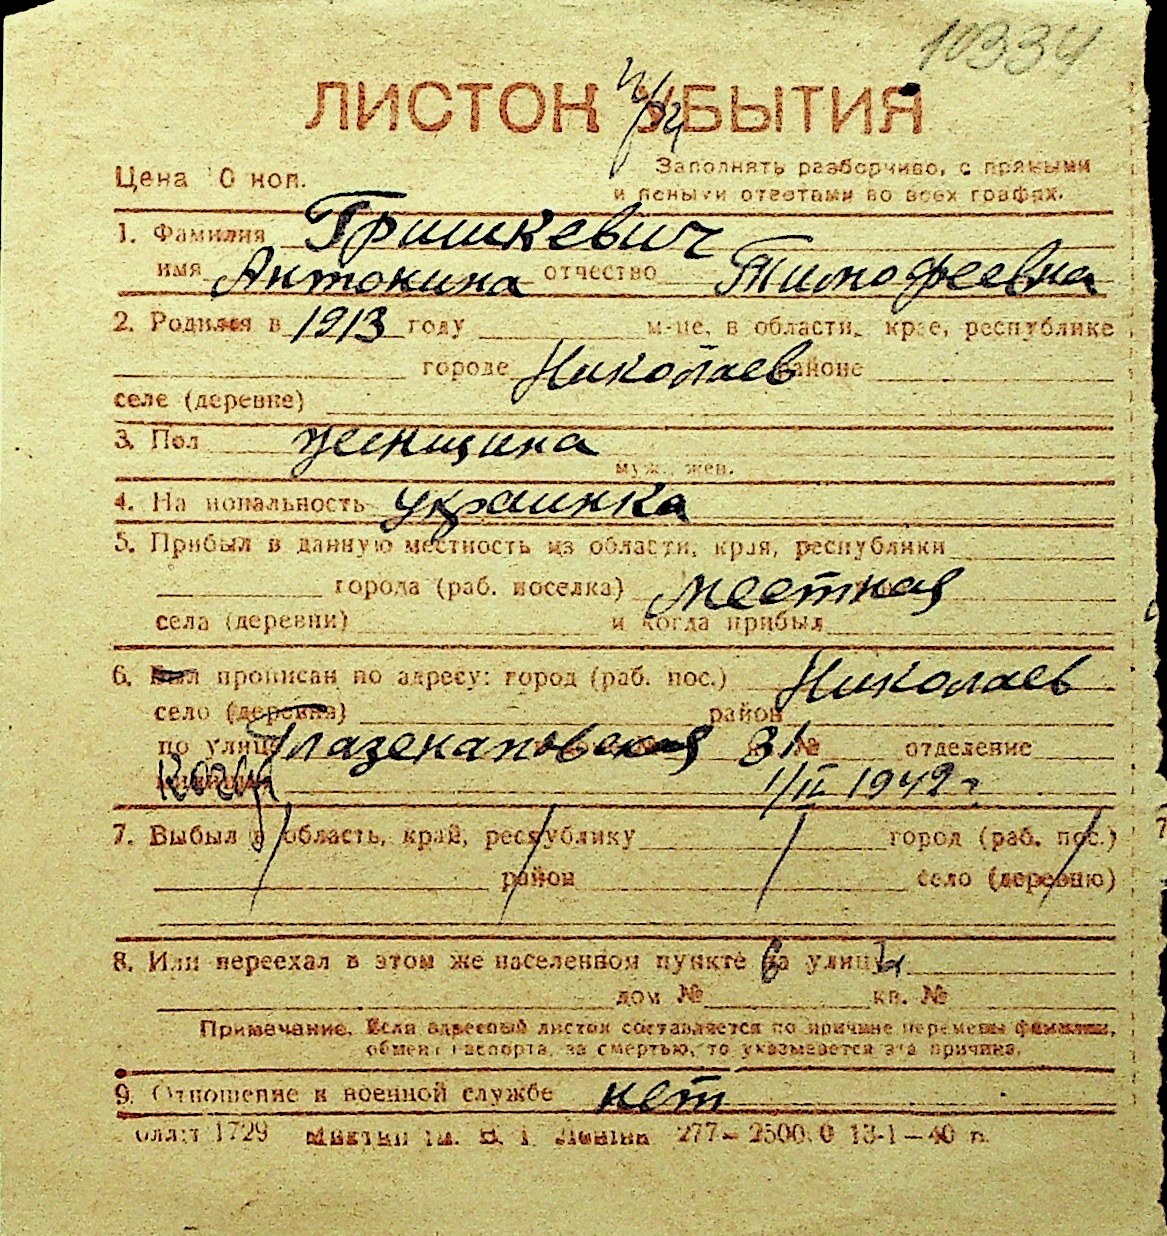 10334
ЛИСТОК УБЫТИЯ
Цена 10 коп.
Заполнять разборчиво, с прямыми
и ясными ответами во всех графах.
1. Фамилия Гришкевич
имя Антонина отчество Тимофеевна
2. Родился в 1913 году м-це, в области, крае, республике
городе Николаев районе
селе (деревне)
3. Пол женщина
муж., жен.
4. Национальность украинка
5. Прибыл в данную местность из области, края, республики
города (раб. поселка) местная
села (деревни) и когда прибыл
6. Был прописан по адресу: город (раб. пос.) Николаев
село (деревня) район
по улице Глазенаповская 31 № отделение
когда 1/II 1942 г.
7. Выбыл в область, край, республику город (раб. пос.)
район село (деревню)
8. Или переехал в этом же населенном пункте на улицу
дом № кв. №
Примечание. Если адресный листок составляется по причине перемены фамилии,
обмена паспорта, за смертью, то указывается эта причина.
9. Отношение к военной службе нет
1729 277— 13-1—40 г.